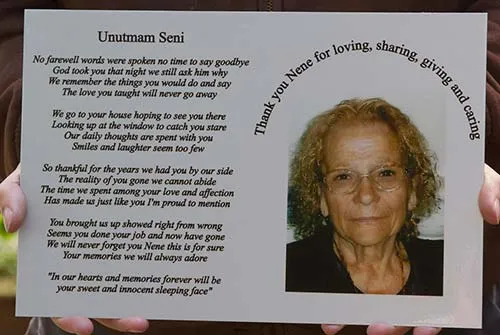 Unutmam Seni
No farewell words were spoken no time to say goodbye
God took you that night we still ask him why
We remember the things you would do and say
The love you taught will never go away
We go to your house hoping to see you there
Looking up at the window to catch you stare
Our daily thoughts are spent with you
Smiles and laughter seem too few
So thankful for the years we had you by our side
The reality of you gone we cannot abide
The time we spent among your love and affection
Has made us just like you I'm proud to mention
You brought us up showed right from wrong
Seems you done your job and now have gone
We will never forget you Nene this is for sure
Your memories we will always adore
"In our hearts and memories forever will be
your sweet and innocent sleeping face"
Thank you Nene for loving, sharing, giving and caring